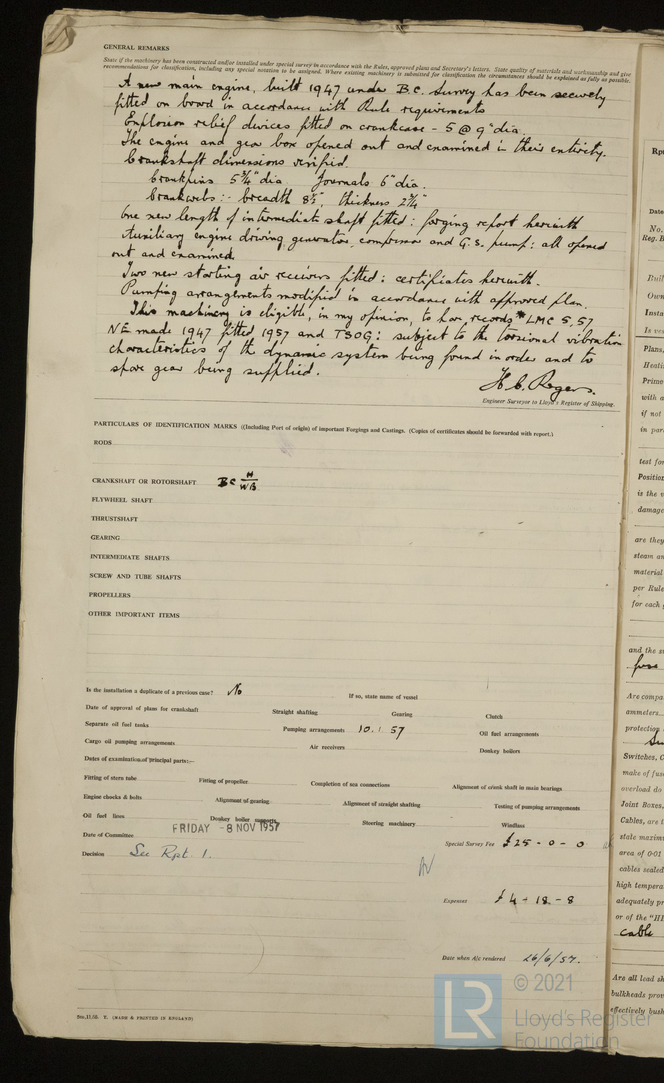 GENERAL REMARKS
State if the machinery has been constructed and/or installed under special survey in accordance with the Rules, approved plans and Secretary's letters. State quality of materials and workmanship and give
recommendations for classification, including any special notation to be assigned. Where existing machinery is submitted for classification the circumstances should be explained as fully as possible.
A new main engine, built 1947 under B.C. Survey has been securely
fitted on board in accordance with Rule requirements
Explosion relief devices fitted on crankcase - 5 @ 9" dia.
The engine and gear box opened out and examined in their entirety.
Crankshaft dimensions verified.
Crankpins 5¾" dia Journals 6" dia.
Crankwebs :- breadth 8½", thickness 2¾"
One new length of intermediate shaft fitted : forging report herewith
Auxiliary engine driving generator, compressor and G.S. pump : all opened
out and examined.
Two new starting air receivers fitted : certificates herewith.
Pumping arrangements modified in accordance with approved plan.
This machinery is eligible, in my opinion, to have records * LMC 5,57
NE made 1947 fitted 1957 and TSOG : subject to the torsional vibration
characteristics of the dynamic system being found in order and to
spare gear being supplied.
H. C. Rogers.
Engineer Surveyor to Lloyd's Register of Shipping.
PARTICULARS OF IDENTIFICATION MARKS ((Including Port of origin) of important Forgings and Castings. (Copies of certificates should be forwarded with report.)
RODS
CRANKSHAFT OR ROTORSHAFT BC H/WB
FLYWHEEL SHAFT
THRUSTSHAFT
GEARING
INTERMEDIATE SHAFTS
SCREW AND TUBE SHAFTS
PROPELLERS
OTHER IMPORTANT ITEMS
Is the installation a duplicate of a previous case? No If so, state name of vessel
Date of approval of plans for crankshaft Straight shafting Gearing Clutch
Separate oil fuel tanks Pumping arrangements 10.1.57 Oil fuel arrangements
Cargo oil pumping arrangements Air receivers Donkey boilers
Dates of examination of principal parts:—
Fitting of stern tube Fitting of propeller Completion of sea connections Alignment of crank shaft in main bearings
Engine chocks & bolts Alignment of gearing Alignment of straight shafting Testing of pumping arrangements
Oil fuel lines Donkey boiler supports Steering machinery Windlass
Date of Committee FRIDAY - 8 NOV 1957
Special Survey Fee £25 - 0 - 0
Decision See Rpt. 1.
Expenses £4 - 18 - 8
Date when A/c rendered 26/6/57.
© 2021
Lloyd's Register
Foundation
LR
(MADE & PRINTED IN ENGLAND)